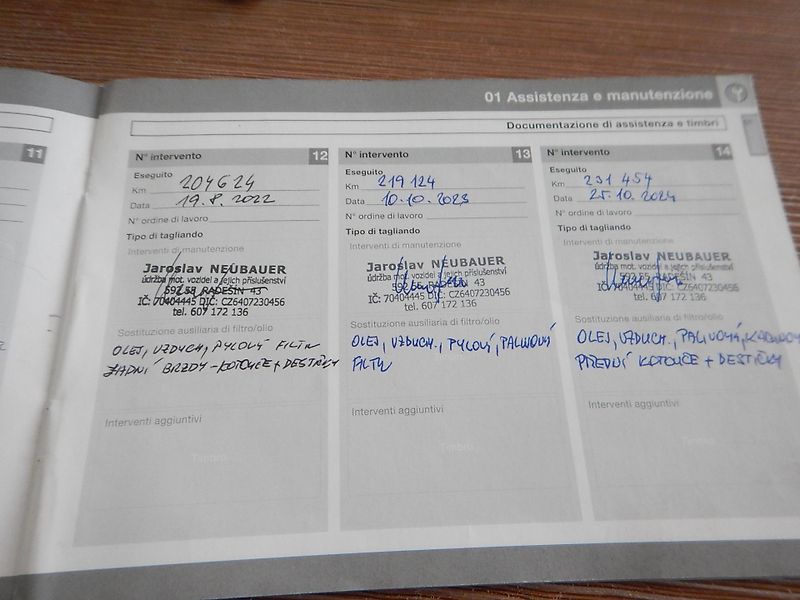 01 Assistenza e manutenzione
Documentazione di assistenza e timbri
11
N° intervento 12
Eseguito
Km 204624
Data 19.8.2022
N° ordine di lavoro
Tipo di tagliando
Interventi di manutenzione
Jaroslav NEUBAUER
údržba mot. vozidel a jejich příslušenství
592 55 RADEŠÍN 43
IČ: 70404445 DIČ: CZ6407230456
tel. 607 172 136
Sostituzione ausiliaria di filtro/olio
OLEJ, VZDUCH, PYLOVÝ FILTR
ZADNÍ BRZDY - KOTOUČE + DESTIČKY
Interventi aggiuntivi
Timbro
N° intervento 13
Eseguito
Km 219 124
Data 10.10.2023
N° ordine di lavoro
Tipo di tagliando
Interventi di manutenzione
Jaroslav NEUBAUER
údržba mot. vozidel a jejich příslušenství
592 55 RADEŠÍN 43
IČ: 70404445 DIČ: CZ6407230456
tel. 607 172 136
Sostituzione ausiliaria di filtro/olio
OLEJ, VZDUCH., PYLOVÝ, PALIVOVÝ
FILTR
Interventi aggiuntivi
Timbro
N° intervento 14
Eseguito
Km 231 454
Data 25.10.2024
N° ordine di lavoro
Tipo di tagliando
Interventi di manutenzione
Jaroslav NEUBAUER
údržba mot. vozidel a jejich příslušenství
592 55 RADEŠÍN 43
IČ: 70404445 DIČ: CZ6407230456
tel. 607 172 136
Sostituzione ausiliaria di filtro/olio
OLEJ, VZDUCH., PALIVOVÝ,
PŘEDNÍ KOTOUČE + DESTIČKY
Interventi aggiuntivi
Timbro